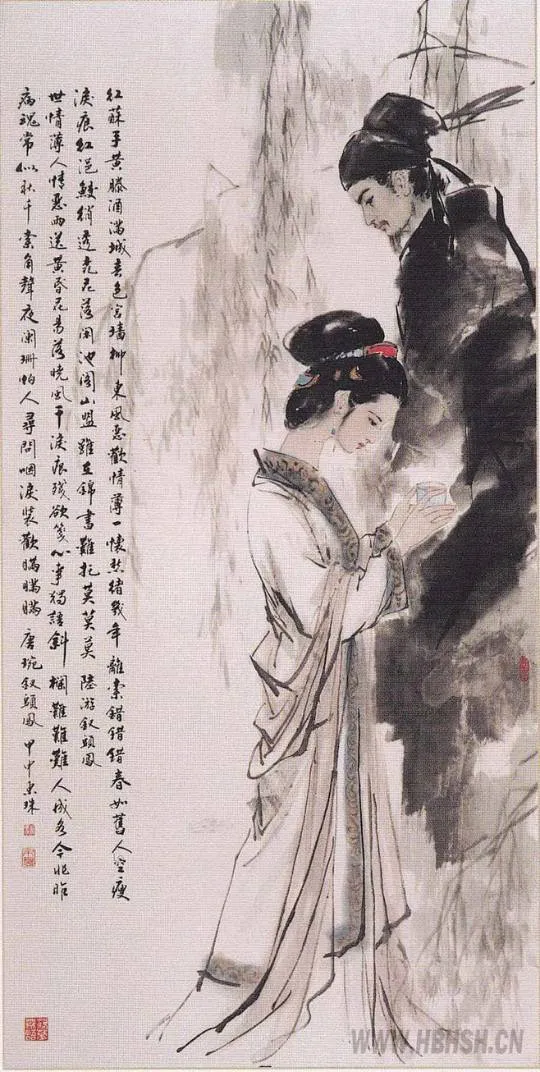 红蘇手黄滕酒满城春色宫墙柳東風惡歡情薄一懷愁緒幾年離索錯錯錯春如舊人空瘦
淚痕红浥鲛绡透桃花落闲池阁山盟雖在錦書難托莫莫莫 陸游釵頭鳳
世情薄人情惡雨送黄昏花易落曉風干淚痕殘欲箋心事獨語斜欄難難難人成各今非昨
病魂常似秋千索角聲夜闌珊怕人尋問咽淚装歡瞒瞒瞒 唐琬釵頭鳳 甲申东珠
WWW.HBHSH.CN